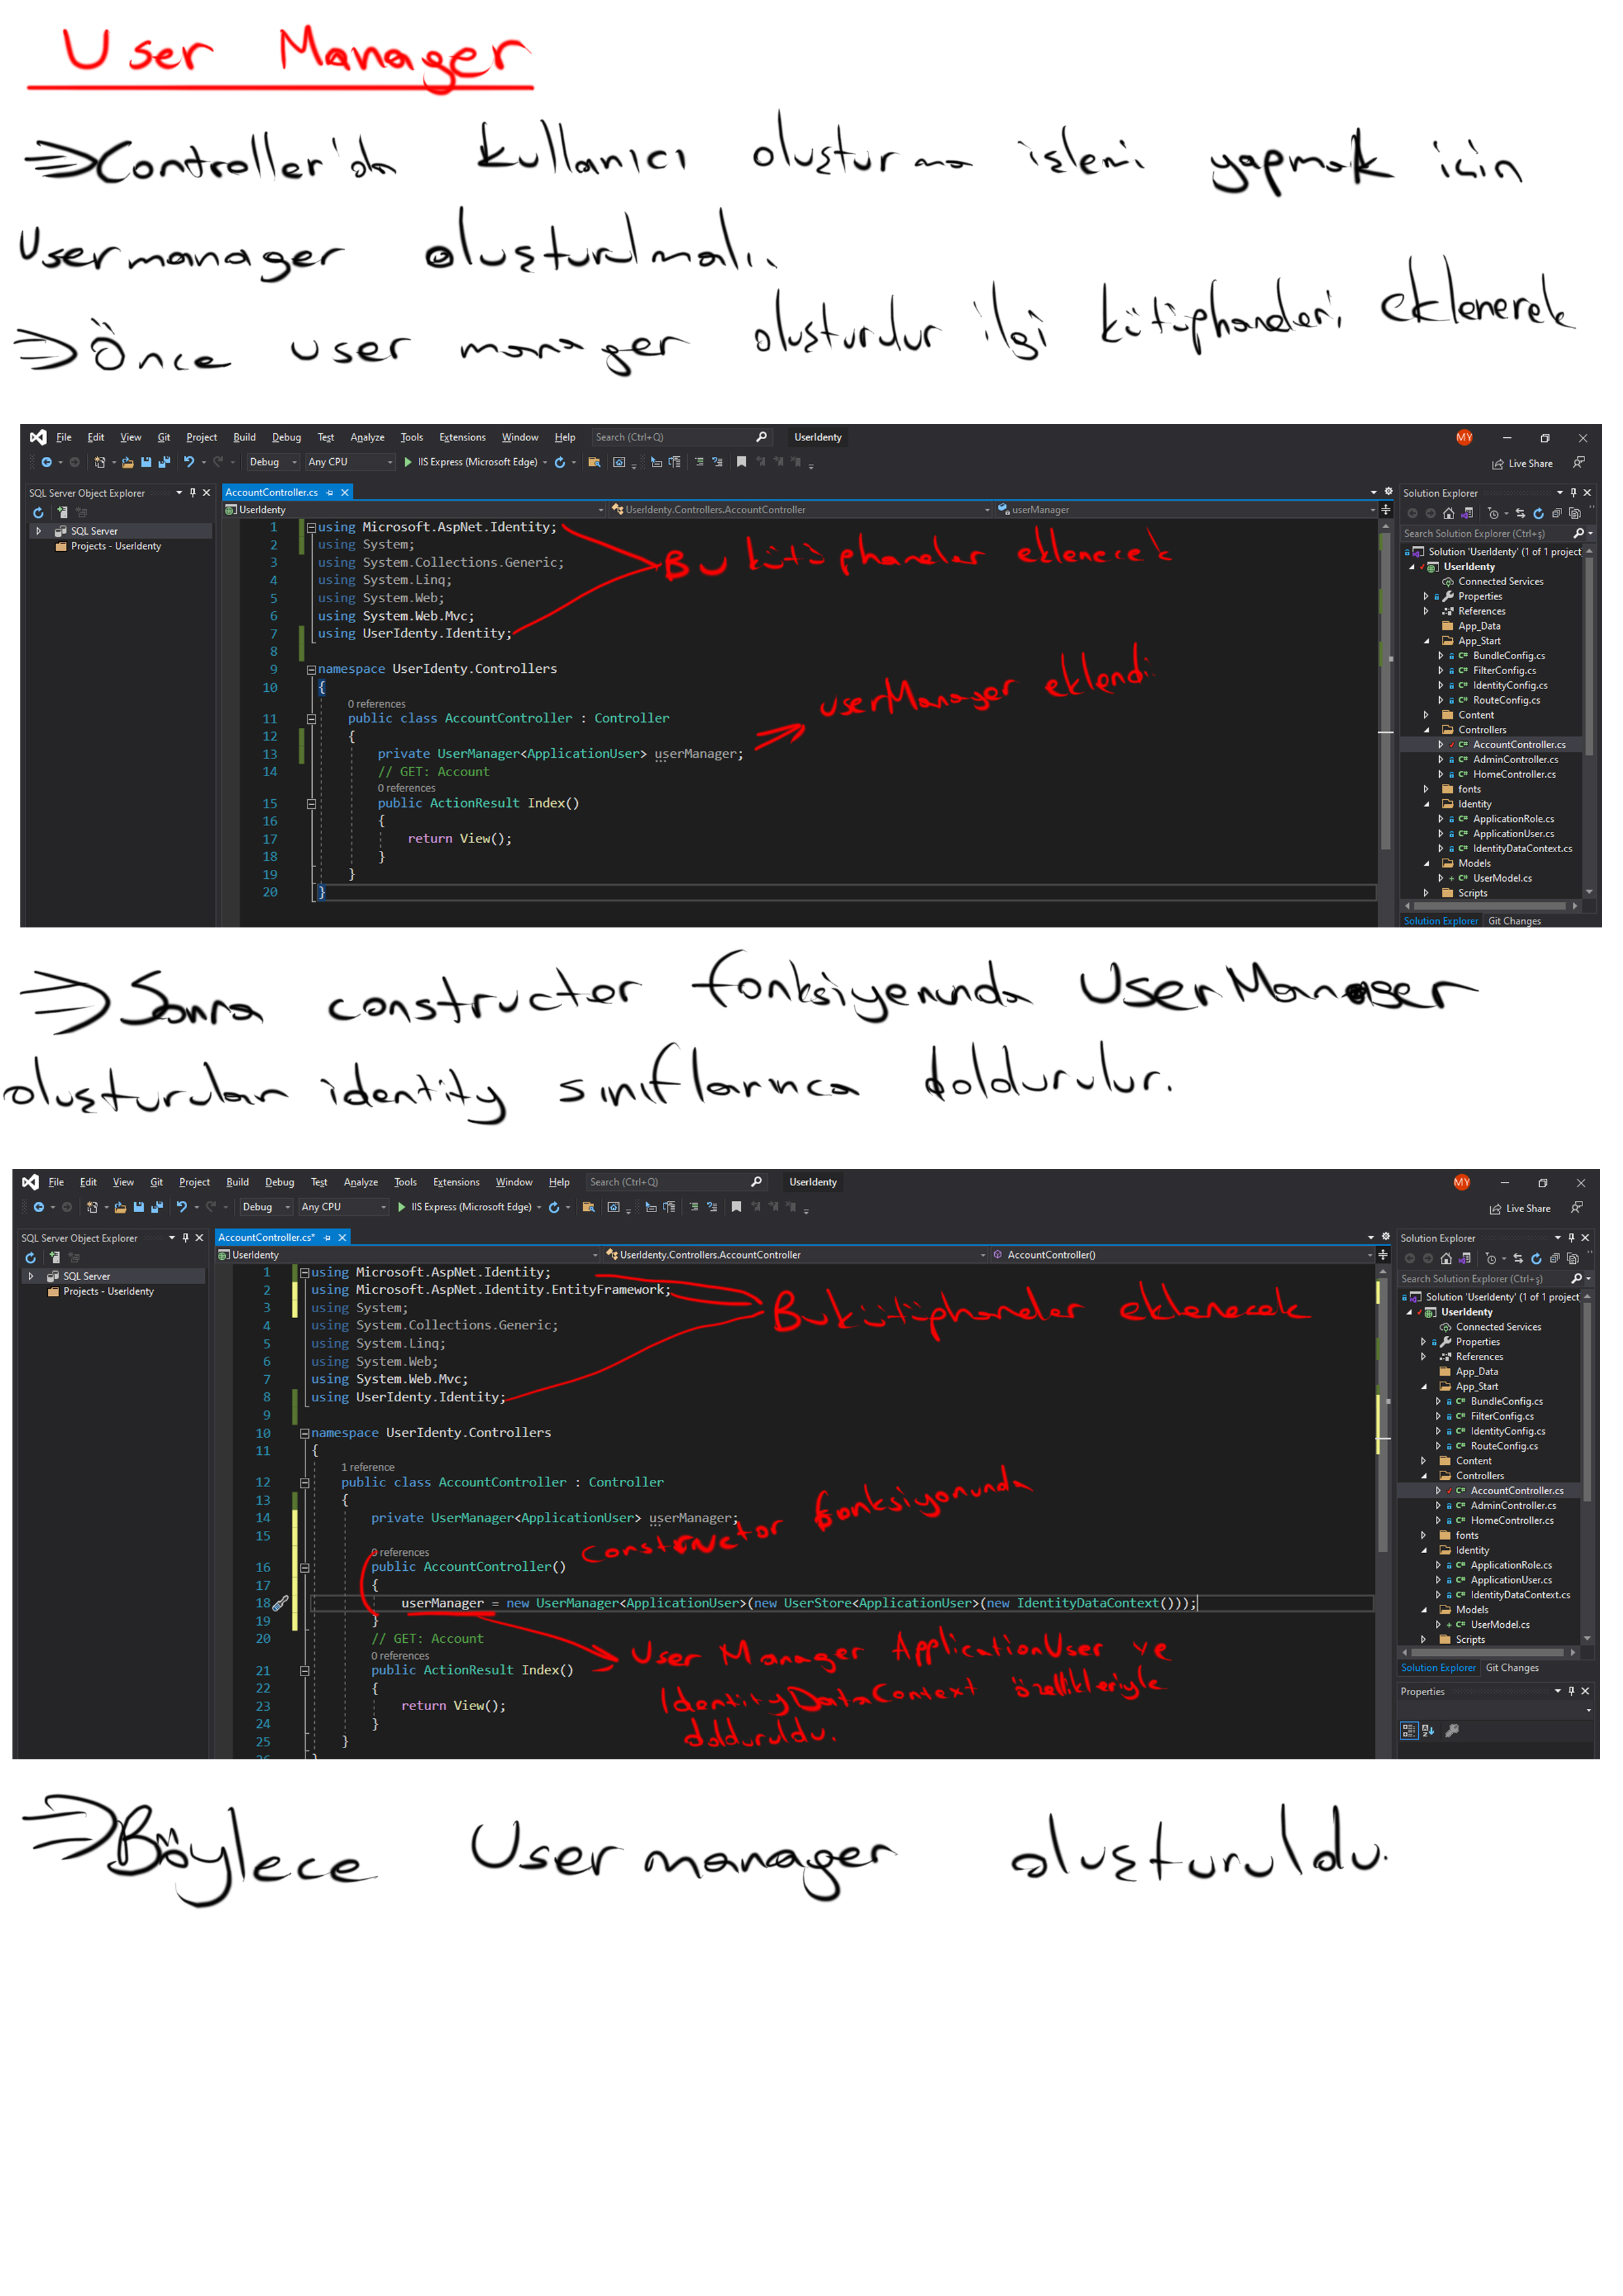 User Manager
⇒Controller'da kullanıcı oluşturma işlemi yapmak için
Usermanager oluşturulmalı.
⇒Önce user manager oluşturdur ilgi kütüphaneleri eklenerek
File Edit View Git Project Build Debug Test Analyze Tools Extensions Window Help Search (Ctrl+Q) UserIdenty MY
Debug Any CPU IIS Express (Microsoft Edge) Live Share
SQL Server Object Explorer
SQL Server
Projects - UserIdenty
AccountController.cs
UserIdenty UserIdenty.Controllers.AccountController userManager
1 using Microsoft.AspNet.Identity;
2 using System;
3 using System.Collections.Generic;
4 using System.Linq;
5 using System.Web;
6 using System.Web.Mvc;
7 using UserIdenty.Identity;
8
9 namespace UserIdenty.Controllers
10 {
0 references
11 public class AccountController : Controller
12 {
13 private UserManager<ApplicationUser> userManager;
14 // GET: Account
0 references
15 public ActionResult Index()
16 {
17 return View();
18 }
19 }
20 }
Bu kütüphaneler eklenecek
userManager eklendi
Solution Explorer
Search Solution Explorer (Ctrl+ş)
Solution 'UserIdenty' (1 of 1 project
UserIdenty
Connected Services
Properties
References
App_Data
App_Start
C# BundleConfig.cs
C# FilterConfig.cs
C# IdentityConfig.cs
C# RouteConfig.cs
Content
Controllers
C# AccountController.cs
C# AdminController.cs
C# HomeController.cs
fonts
Identity
C# ApplicationRole.cs
C# ApplicationUser.cs
C# IdentityDataContext.cs
Models
+ C# UserModel.cs
Scripts
Solution Explorer Git Changes
⇒Sonra constructor fonksiyonunda UserManager
oluşturulan identity sınıflarınca doldurulur.
File Edit View Git Project Build Debug Test Analyze Tools Extensions Window Help Search (Ctrl+Q) UserIdenty MY
Debug Any CPU IIS Express (Microsoft Edge) Live Share
SQL Server Object Explorer
SQL Server
Projects - UserIdenty
AccountController.cs*
UserIdenty UserIdenty.Controllers.AccountController AccountController()
1 using Microsoft.AspNet.Identity;
2 using Microsoft.AspNet.Identity.EntityFramework;
3 using System;
4 using System.Collections.Generic;
5 using System.Linq;
6 using System.Web;
7 using System.Web.Mvc;
8 using UserIdenty.Identity;
9
10 namespace UserIdenty.Controllers
11 {
1 reference
12 public class AccountController : Controller
13 {
14 private UserManager<ApplicationUser> userManager;
15
0 references
16 public AccountController()
17 {
18 userManager = new UserManager<ApplicationUser>(new UserStore<ApplicationUser>(new IdentityDataContext()));
19 }
20 // GET: Account
0 references
21 public ActionResult Index()
22 {
23 return View();
24 }
25 }
26 }
Bu kütüphaneler eklenecek
constructor fonksiyonunda
User Manager ApplicationUser ve
IdentityDataContext özellikleriyle
dolduruldu.
Solution Explorer
Search Solution Explorer (Ctrl+ş)
Solution 'UserIdenty' (1 of 1 project
UserIdenty
Connected Services
Properties
References
App_Data
App_Start
C# BundleConfig.cs
C# FilterConfig.cs
C# IdentityConfig.cs
C# RouteConfig.cs
Content
Controllers
C# AccountController.cs
C# AdminController.cs
C# HomeController.cs
fonts
Identity
C# ApplicationRole.cs
C# ApplicationUser.cs
C# IdentityDataContext.cs
Models
+ C# UserModel.cs
Scripts
Solution Explorer Git Changes
Properties
⇒Böylece Usermanager oluşturuldu.